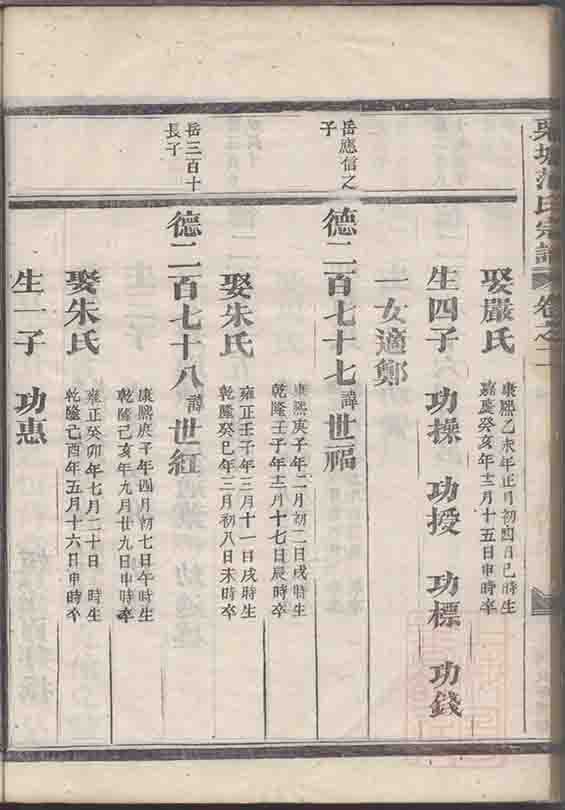 氏宗譜 卷之二
娶嚴氏
康熙乙未年正月初四日巳時生
嘉慶癸亥年十二月十五日申時卒
生四子 功操 功授 功標 功錢
一女適鄭
岳應信之子
德二百七十七 諱世福
康熙庚子年二月初二日戌時生
乾隆壬子年十二月十七日辰時卒
娶朱氏
雍正壬子年三月十一日戌時生
乾隆癸巳年三月初八日未時卒
岳三百十長子
德二百七十八 諱世紅
康熙庚子年四月初七日午時生
乾隆己亥年九月廿九日申時卒
娶朱氏
雍正癸卯年七月二十日 時生
乾隆己酉年五月十六日申時卒
生一子 功惠